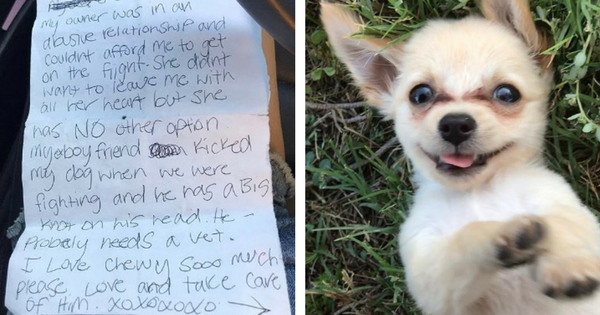 my owner was in an
abusive relationship and
couldnt afford me to get
on the flight. She didnt
want to leave me with
all her heart but she
has NO other option
my boyfriend kicked
my dog when we were
fighting and he has a Big
knot on his head. He
Probely needs a vet.
I Love chewy sooo much
please love and take care
of Him. xoxoxoxo